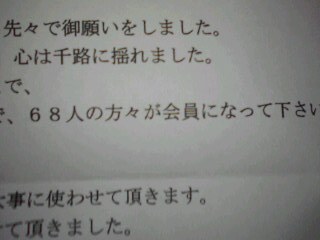 先々で御願いをしました。
心は千路に揺れました。
で、
、６８人の方々が会員になって下さい
事に使わせて頂きます。
て頂きました。